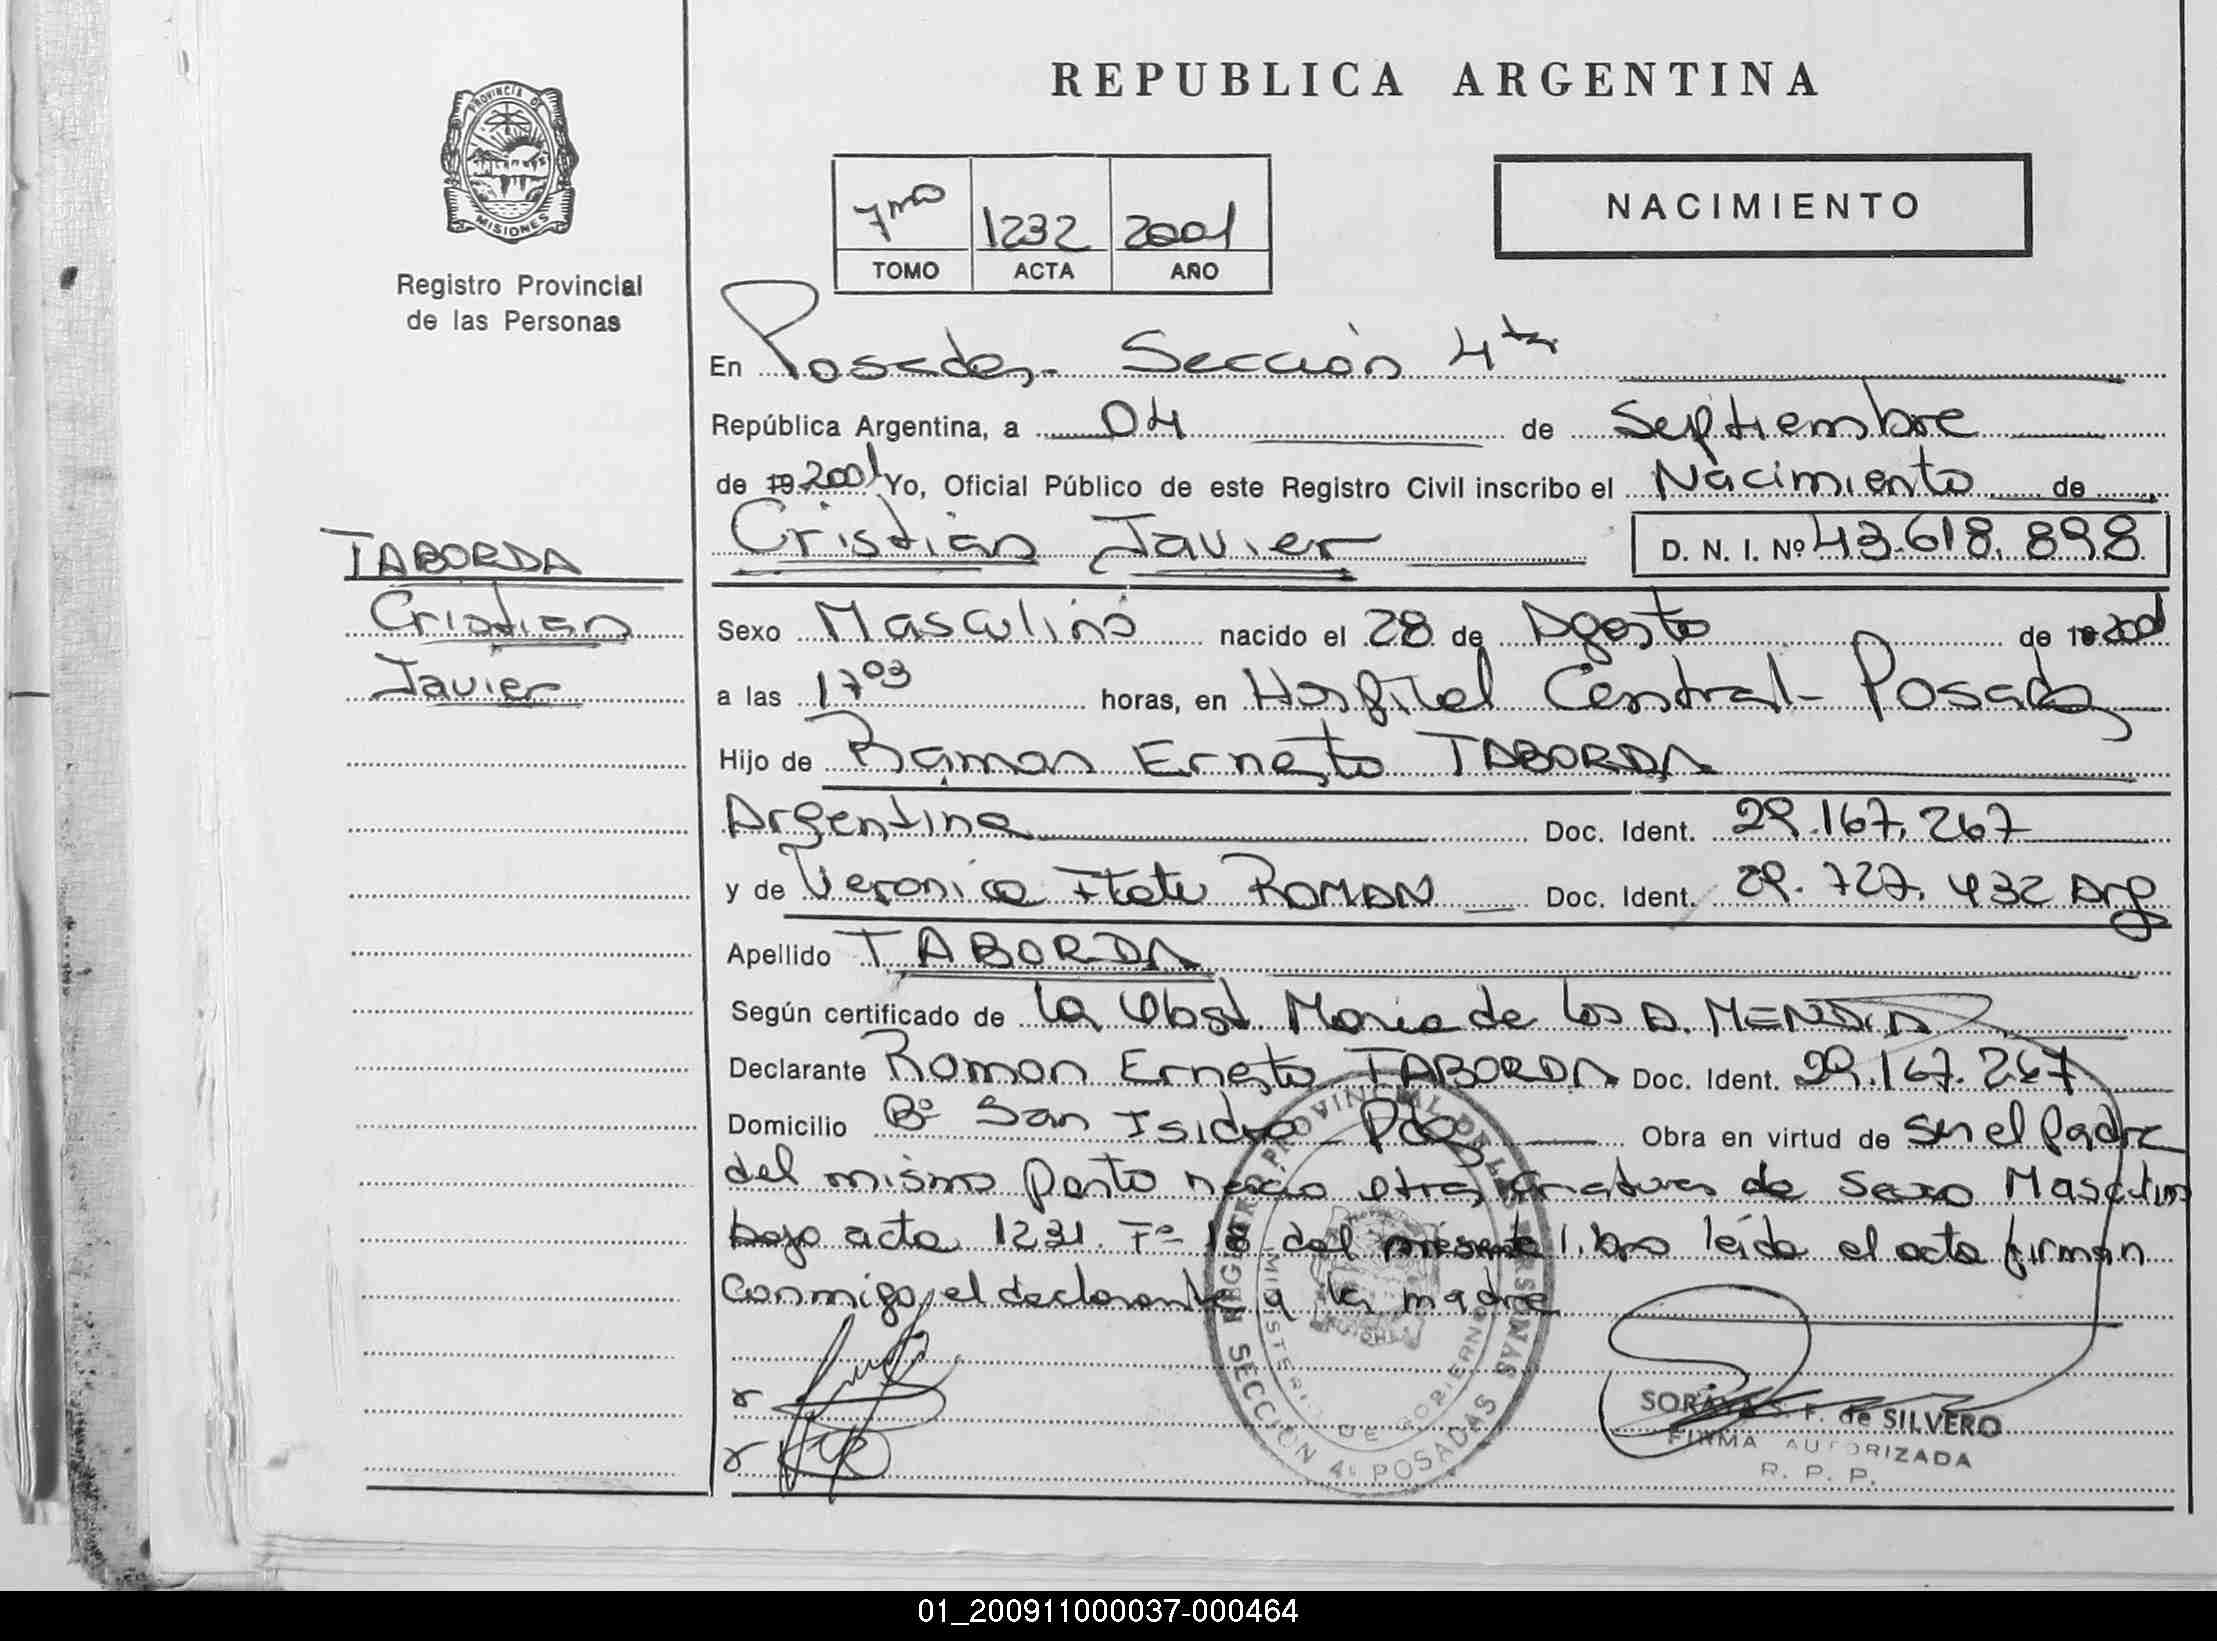 REPUBLICA ARGENTINA
PROVINCIA DE
MISIONES
Registro Provincial
de las Personas
7mo 1232 2001
TOMO ACTA AÑO
NACIMIENTO
En Posadas.- Sección 4ta
República Argentina, a 04 de Septiembre
de 19 2001 Yo, Oficial Público de este Registro Civil inscribo el Nacimiento de
Cristian Javier D. N. I. Nº 43.618.898
TABORDA
Cristian
Javier
Sexo Masculino nacido el 28 de Agosto de 19 2001
a las 17 03 horas, en Hospital Central - Posadas
Hijo de Ramon Ernesto TABORDA
Argentina Doc. Ident. 29.167.267
y de Veronica Itatí ROMAN Doc. Ident. 29.727.432 Arg
Apellido TABORDA
Según certificado de la Obst. Maria de los A.
Declarante Ramon Ernesto TABORDA Doc. Ident. 29.167.267
Domicilio Bº San Isidro - Pdas Obra en virtud de ser el Padre
del mismo parto nacio otra criatura de sexo Masculino
bajo acta 1231 Fº 18 del presente libro leida el acta firman
conmigo, el declarante y la madre
REGISTRO PROVINCIAL DE LAS PERSONAS
MINISTERIO DE GOBIERNO
SECCION 4ª POSADAS
SORAYA S. F. de SILVERO
FIRMA AUTORIZADA
R. P. P.
01_200911000037-000464